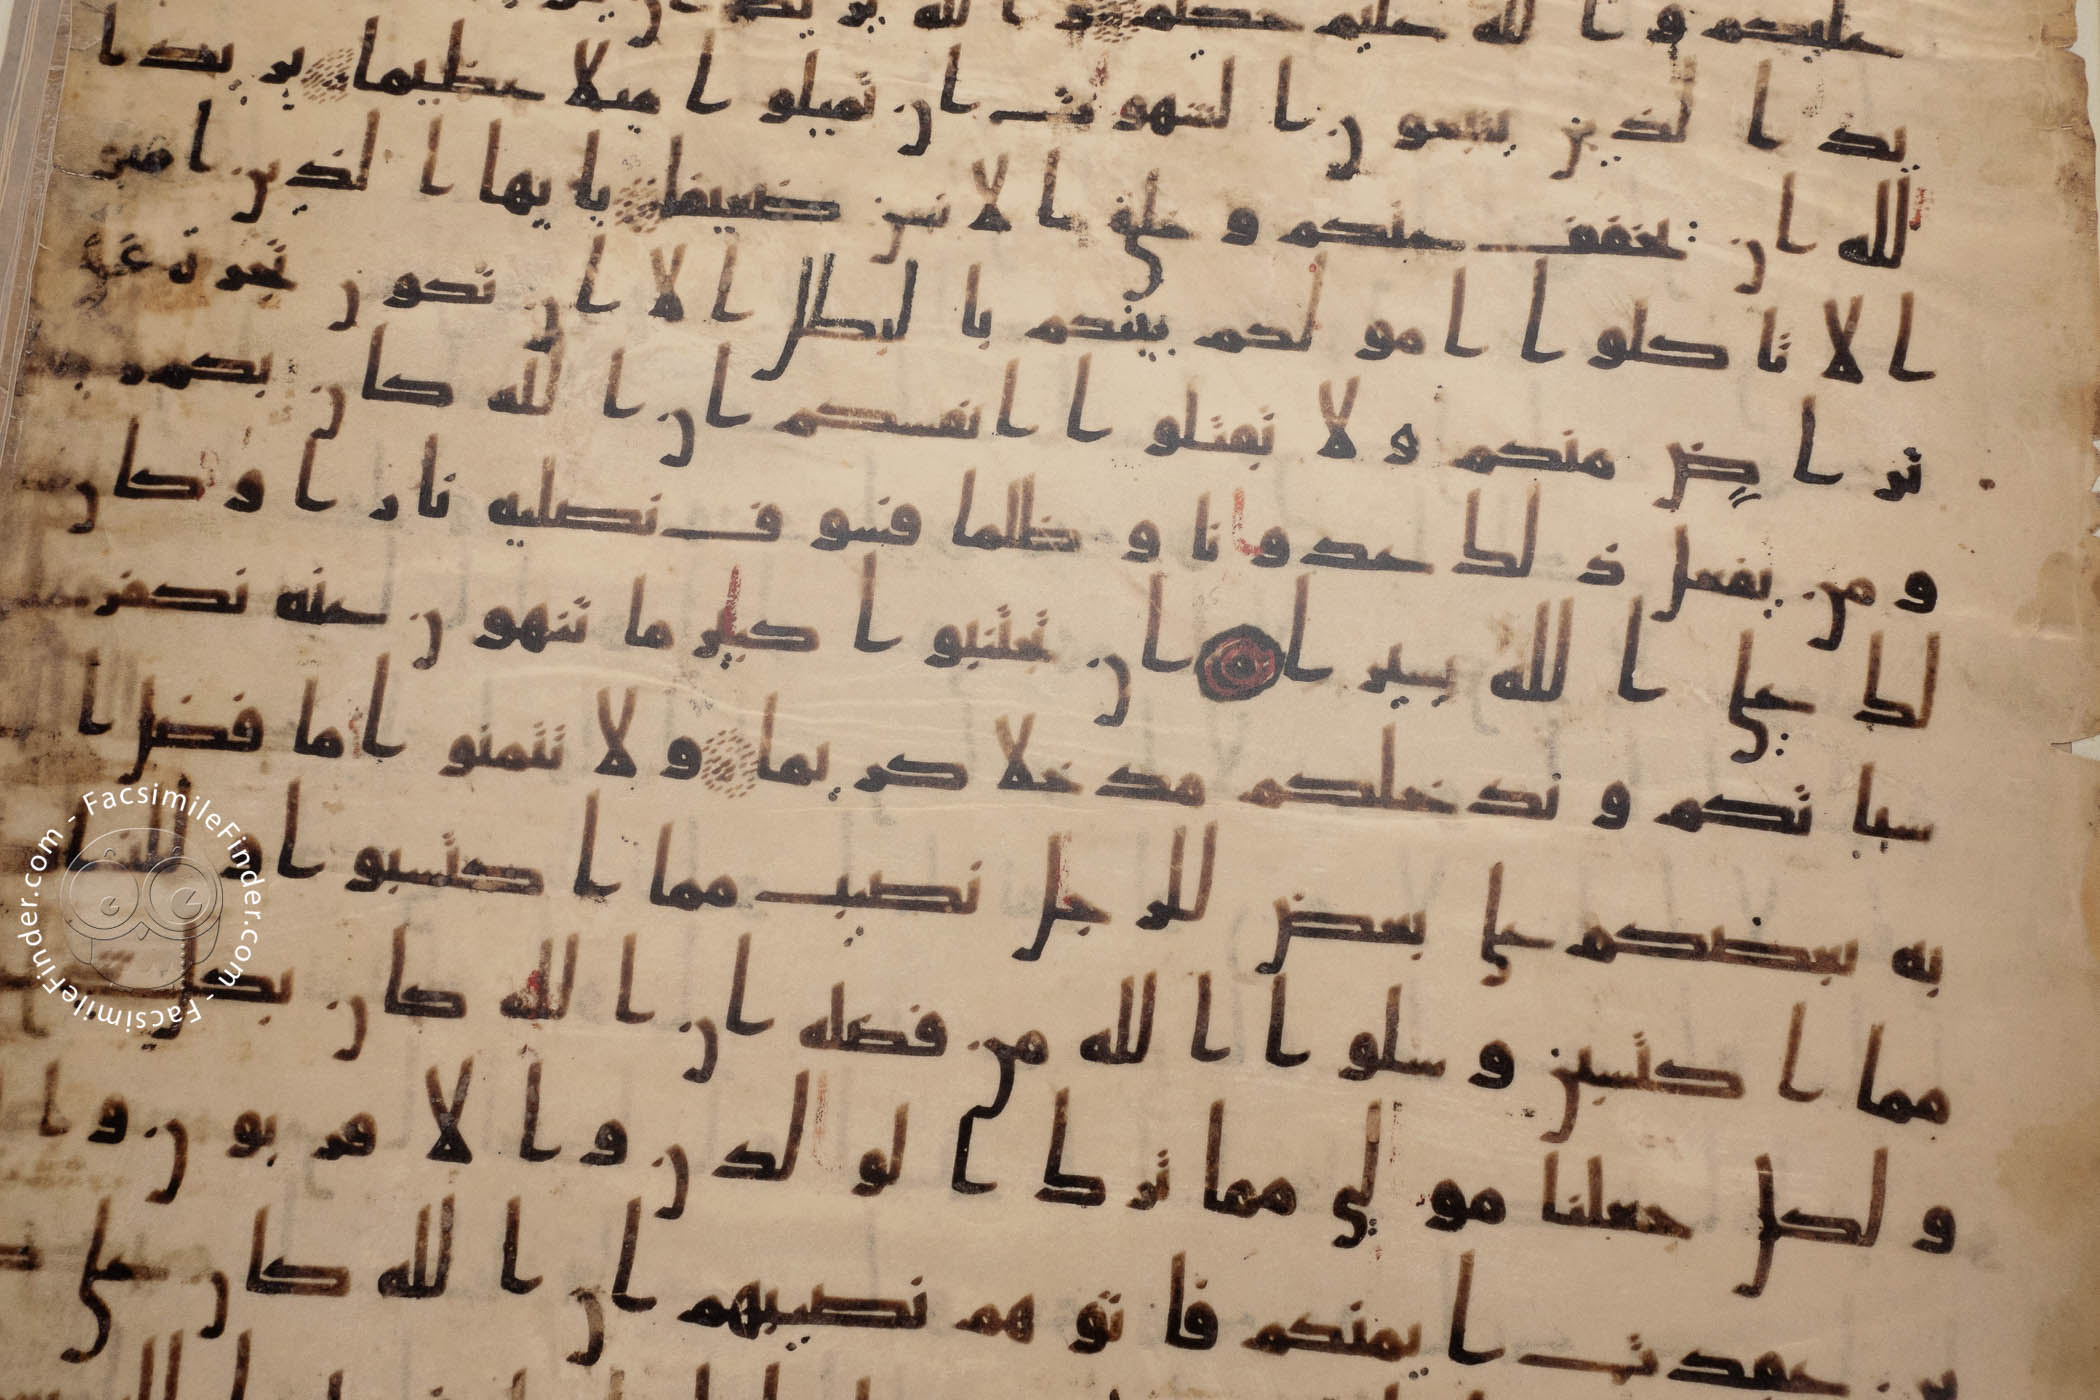 عليكم و ا لله عليم حكيم و ا لله ير يد ا ن
يد ا لذين يتبعو ن ا لشهوت ا ن تميلو ا ميلا عظيما ير يد ا
لله ا ن يخفف عنكم و خلق ا لا نسن ضعيفا يا يها ا لذين ا منو
ا لا تا كلو ا ا مو لكم بينكم با لبطل ا لا ا ن تكو ن تجر ة عن
تر ا ض منكم و لا تقتلو ا ا نفسكم ا ن ا لله كا ن بكم ر
و من يفعل ذ لك عد و نا و ظلما فسو ف نصليه نا ر ا و كا ن
لك علي ا لله يسير ا ا ن تجتنبو ا كبير ما تنهو ن عنه نكفر
سيا تكم و ند خلكم مد خلا كر يما و لا تتمنو ا ما فضل ا
به بعضكم علي بعض للر جل نصيب مما ا كتسبو ا و للنسا
مما ا كتسبن و سلو ا ا لله من فضله ا ن ا لله كا ن بكل
و لكل جعلنا مو لي مما تر ك ا لو لد ن و ا لا قر بو ن و ا
ين عقد ت ا يمنكم فا تو هم نصيبهم ا ن ا لله كا ن علي
FacsimileFinder.com - FacsimileFinder.com -